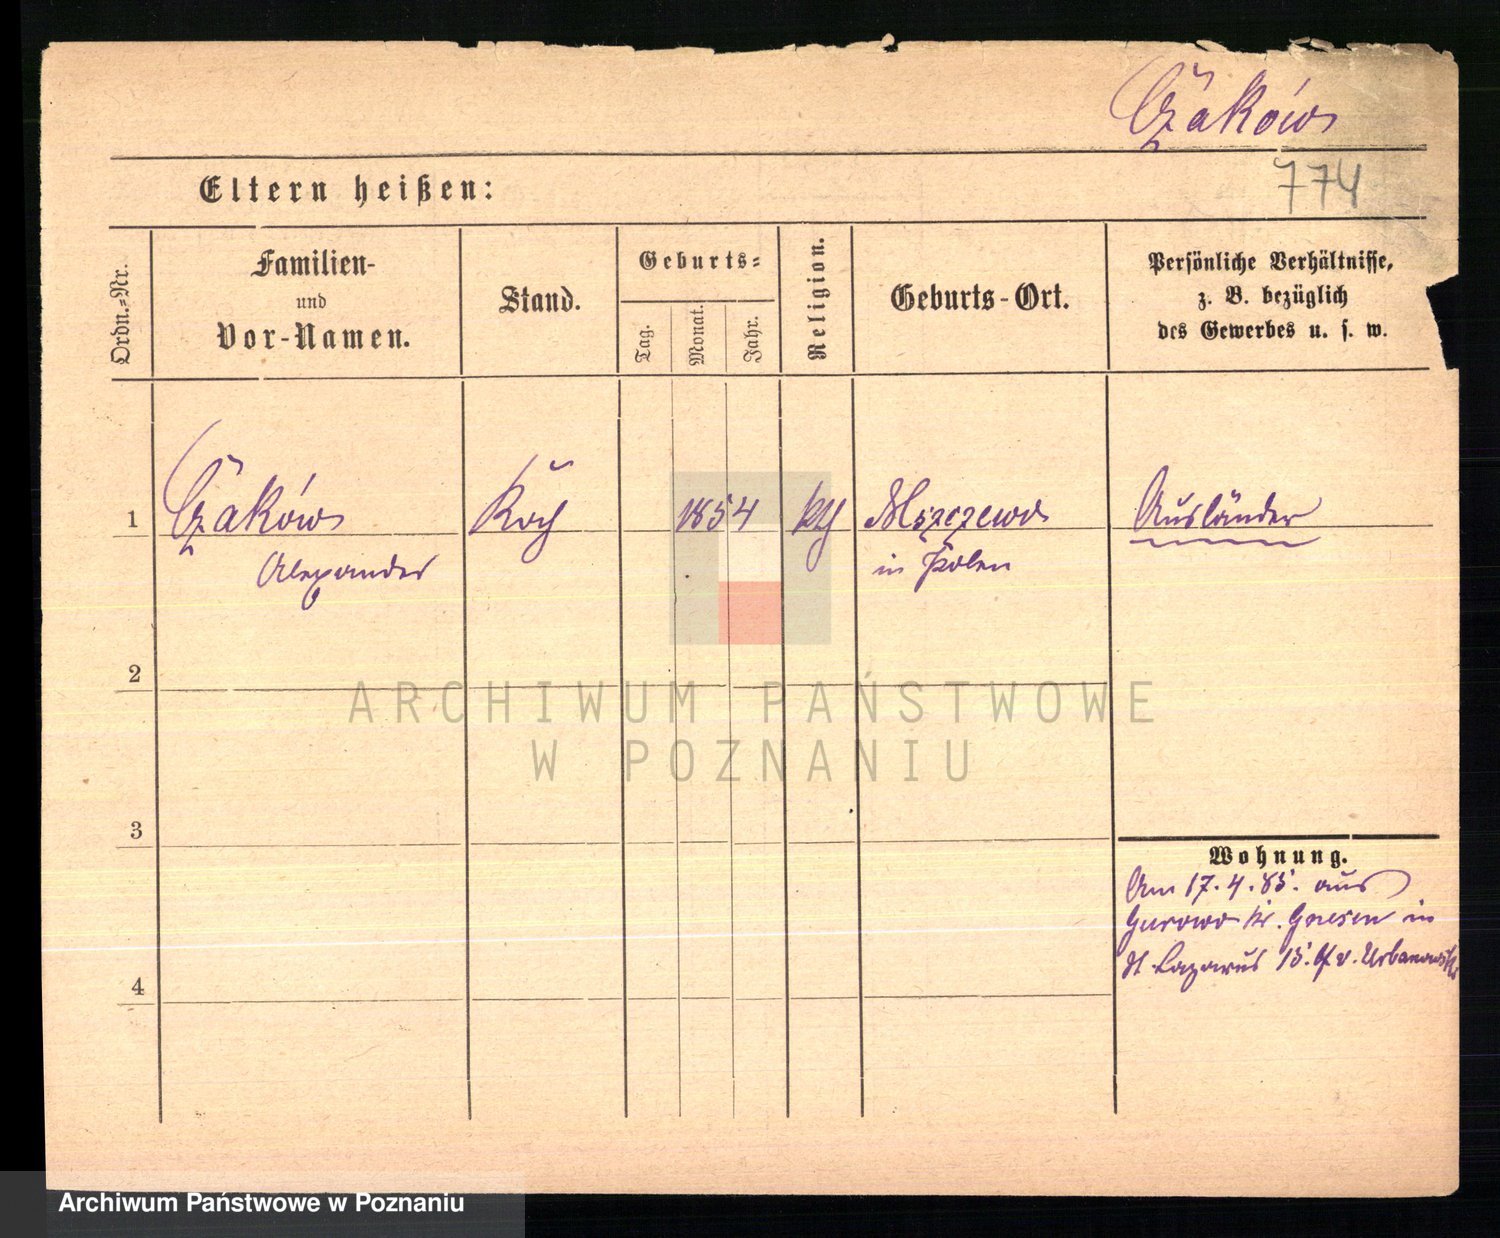 Czaków
774
Eltern heißen:
Ordn.-Nr.
Familien-
und
Vor-Namen.
Stand.
Geburts-
Tag.
Monat.
Jahr.
Religion.
Geburts-Ort.
Persönliche Verhältnisse,
z. B. bezüglich
des Gewerbes u. s. w.
1
Czaków
Alexander
Koch
1854
kth
Mszczewo
in Polen
Ausländer
2
ARCHIWUM PAŃSTWOWE
W POZNANIU
3
Wohnung.
Am 17.4.85. aus
Gurowo Kr. Gnesen in
St. Lazarus 15. b/ v. Urbanowski
4
Archiwum Państwowe w Poznaniu